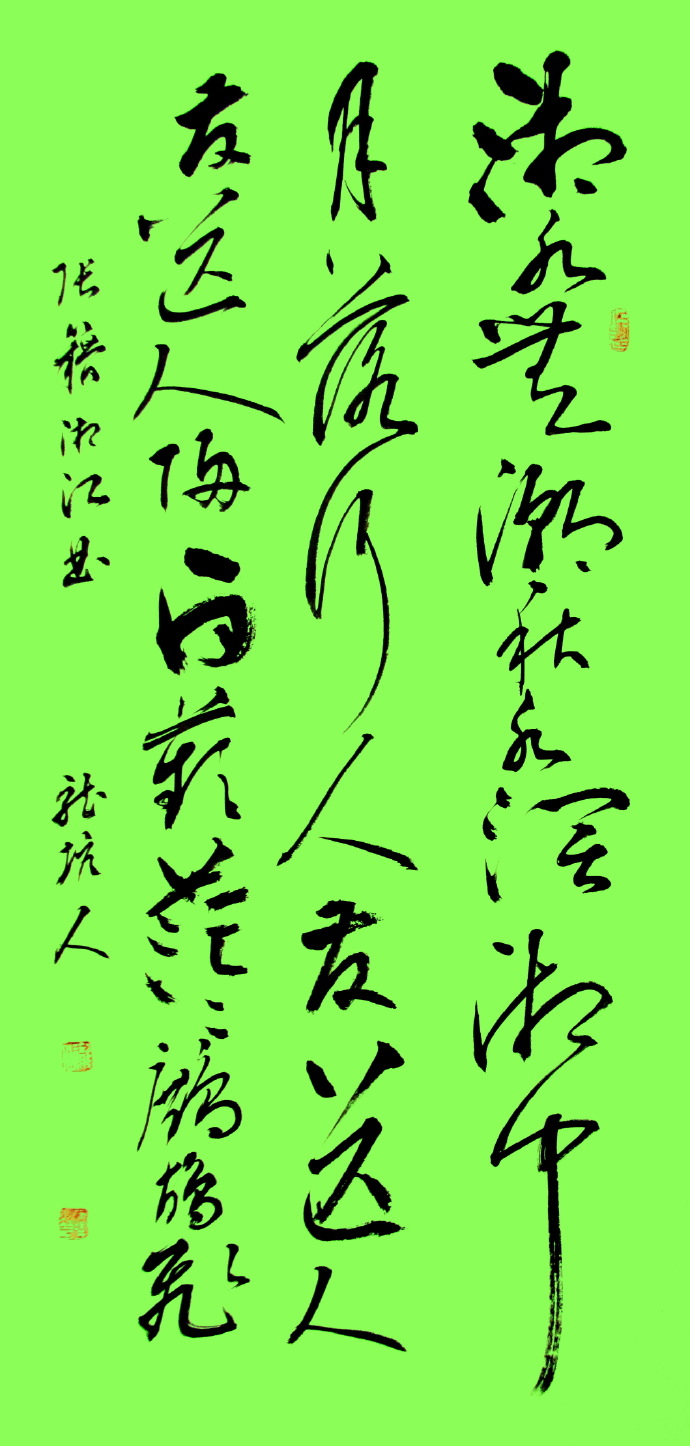 湘水無潮秋水闊湘中
月落行人發送人
發送人歸白蘋茫茫鷓鴣飛
張籍湘江曲
龍坑人